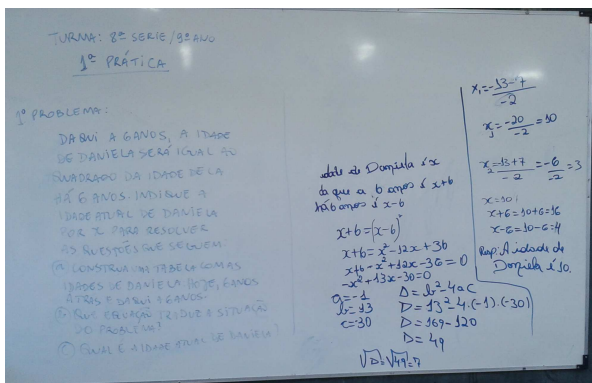 TURMA: 8ª SERIE/9º ANO
1ª PRÁTICA
1º PROBLEMA:
DAQUI A 6 ANOS, A IDADE
DE DANIELA SERÁ IGUAL AO
QUADRADO DA IDADE DELA
HÁ 6 ANOS. INDIQUE A
IDADE ATUAL DE DANIELA
POR X PARA RESOLVER
AS QUESTÕES QUE SEGUEM:
a) CONSTRUA UMA TABELA COM AS
IDADES DE DANIELA HOJE, 6 ANOS
ATRÁS E DAQUI A 6 ANOS.
b) QUE EQUAÇÃO TRADUZ A SITUAÇÃO
DO PROBLEMA?
c) QUAL É A IDADE ATUAL DE DANIELA?
idade de Daniela é x
da que a 6 anos é x+6
há 6 anos é x-6
x+6=(x-6)²
x+6=x²-12x+36
x+6-x²+12x-36=0
-x²+13x-30=0
a=-1
b=13
c=-30
Δ=b²-4ac
Δ=13²-4·(-1)·(-30)
Δ=169-120
Δ=49
√Δ=√49=7
x₁=-13-7/-2
x₁=-20/-2=10
x₂=-13+7/-2=-6/-2=3
x=10;
x+6=10+6=16
x-6=10-6=4
Resp: A idade de
Daniela é 10.